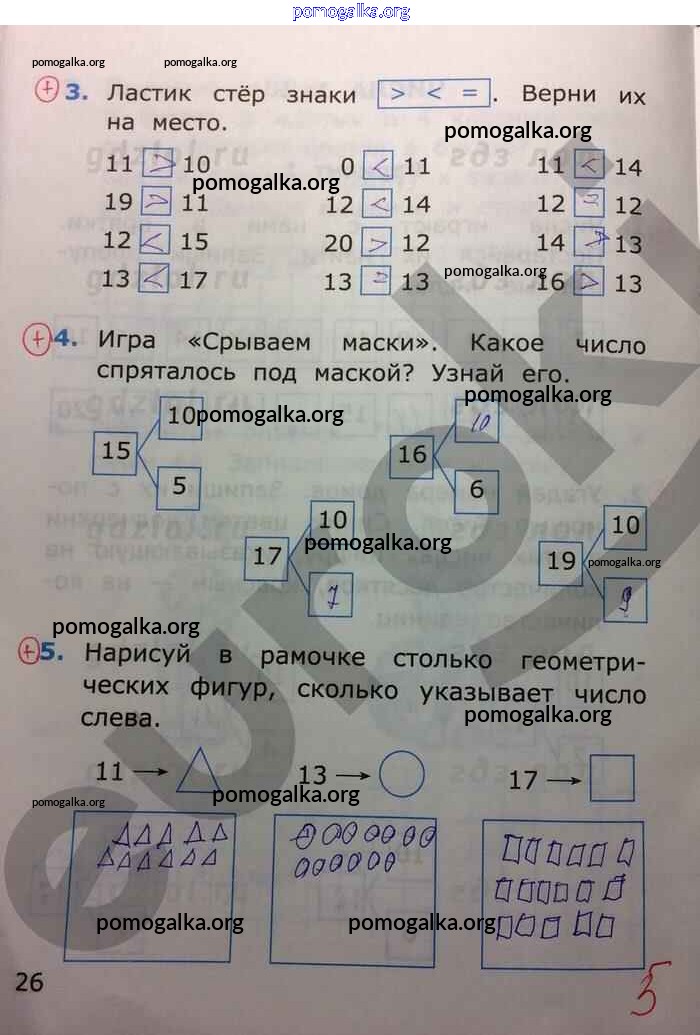 pomogalka.org
pomogalka.org pomogalka.org
3. Ластик стёр знаки > < = . Верни их
на место.
pomogalka.org
11 > 10 0 < 11 11 < 14
pomogalka.org
19 > 11 12 < 14 12 = 12
12 < 15 20 > 12 14 > 13
pomogalka.org
13 < 17 13 = 13 16 > 13
4. Игра «Срываем маски». Какое число
спряталось под маской? Узнай его.
pomogalka.org
10 10
pomogalka.org
15 16
5 6
10 10
pomogalka.org
17 19
pomogalka.org
7 9
pomogalka.org
5. Нарисуй в рамочке столько геометри-
ческих фигур, сколько указывает число
слева.
pomogalka.org
11 → 13 → 17 →
pomogalka.org
pomogalka.org
pomogalka.org pomogalka.org
26
5